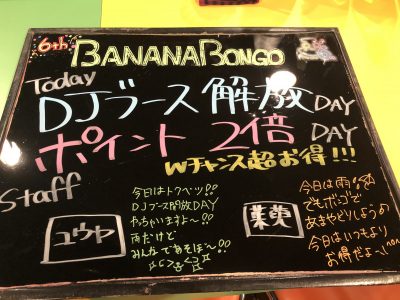 6th BANANABONGO
Today
DJブース 解放 DAY
ポイント 2倍 DAY
Wチャンス超お得!!!
Staff
ユウヤ
今日はトクベツ!!
DJブース解放DAY
やっちゃいますよ〜!!
雨だけど
みんなであそぼ〜!!
葉菜
今日は雨!
でもボンゴで
あまやどりしようの
今日はいつもより
お得だよ〜!